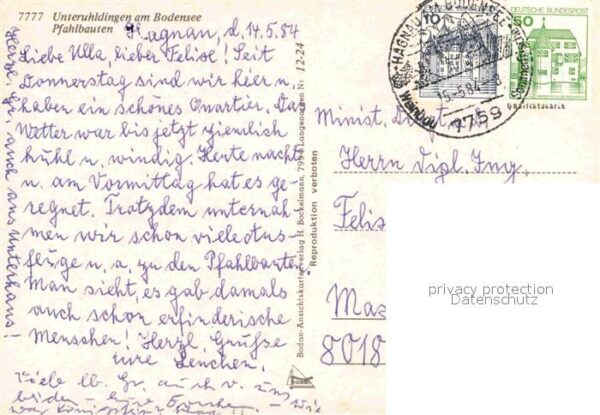 7777 Unteruhldingen am Bodensee
Pfahlbauten
Hagnau, d. 14.5.84
Liebe Ulla, lieber Felix! Seit
Donnerstag sind wir hier u.
haben ein schönes Quartier. Das
Wetter war bis jetzt ziemlich
kühl u. windig. Heute nacht
u. am Vormittag hat es ge-
regnet. Trotzdem unternah-
men wir schon viele Aus-
flüge u. a. zu den Pfahlbauten.
Man sieht, es gab damals
auch schon erfinderische
Menschen! Herzl. Grüße
eure Lenchen.
Viele lb. Gr. auch v. uns
beiden - eure
Herzl. Gr. auch ans Unterhaus!
Bodan-Ansichtskartenverlag H. Bockelmann, 7994 Langenargen Nr. 12-24
Reproduktion verboten
10
50
DEUTSCHE BUNDESPOST
HAGNAU AM BODENSEE
15.-5.84
7759
Minist.
Herrn Dipl. Ing.
Felix
8018
privacy protection
Datenschutz